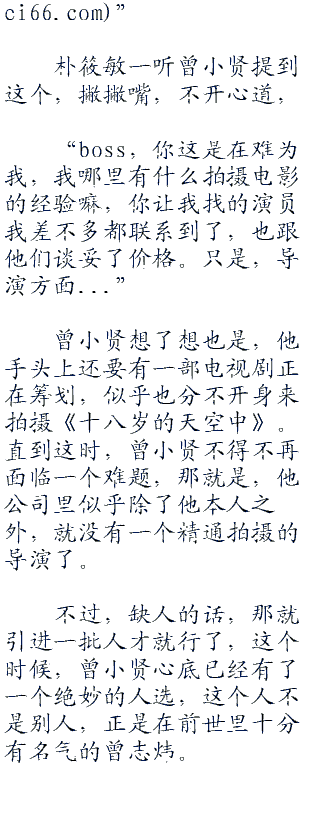 ci66.com)”
朴筱敏一听曾小贤提到
这个，撇撇嘴，不开心道，
“boss，你这是在难为
我，我哪里有什么拍摄电影
的经验嘛，你让我找的演员
我差不多都联系到了，也跟
他们谈妥了价格。只是，导
演方面...”
曾小贤想了想也是，他
手头上还要有一部电视剧正
在筹划，似乎也分不开身来
拍摄《十八岁的天空中》。
直到这时，曾小贤不得不再
面临一个难题，那就是，他
公司里似乎除了他本人之
外，就没有一个精通拍摄的
导演了。
不过，缺人的话，那就
引进一批人才就行了，这个
时候，曾小贤心底已经有了
一个绝妙的人选，这个人不
是别人，正是在前世里十分
有名气的曾志炜。